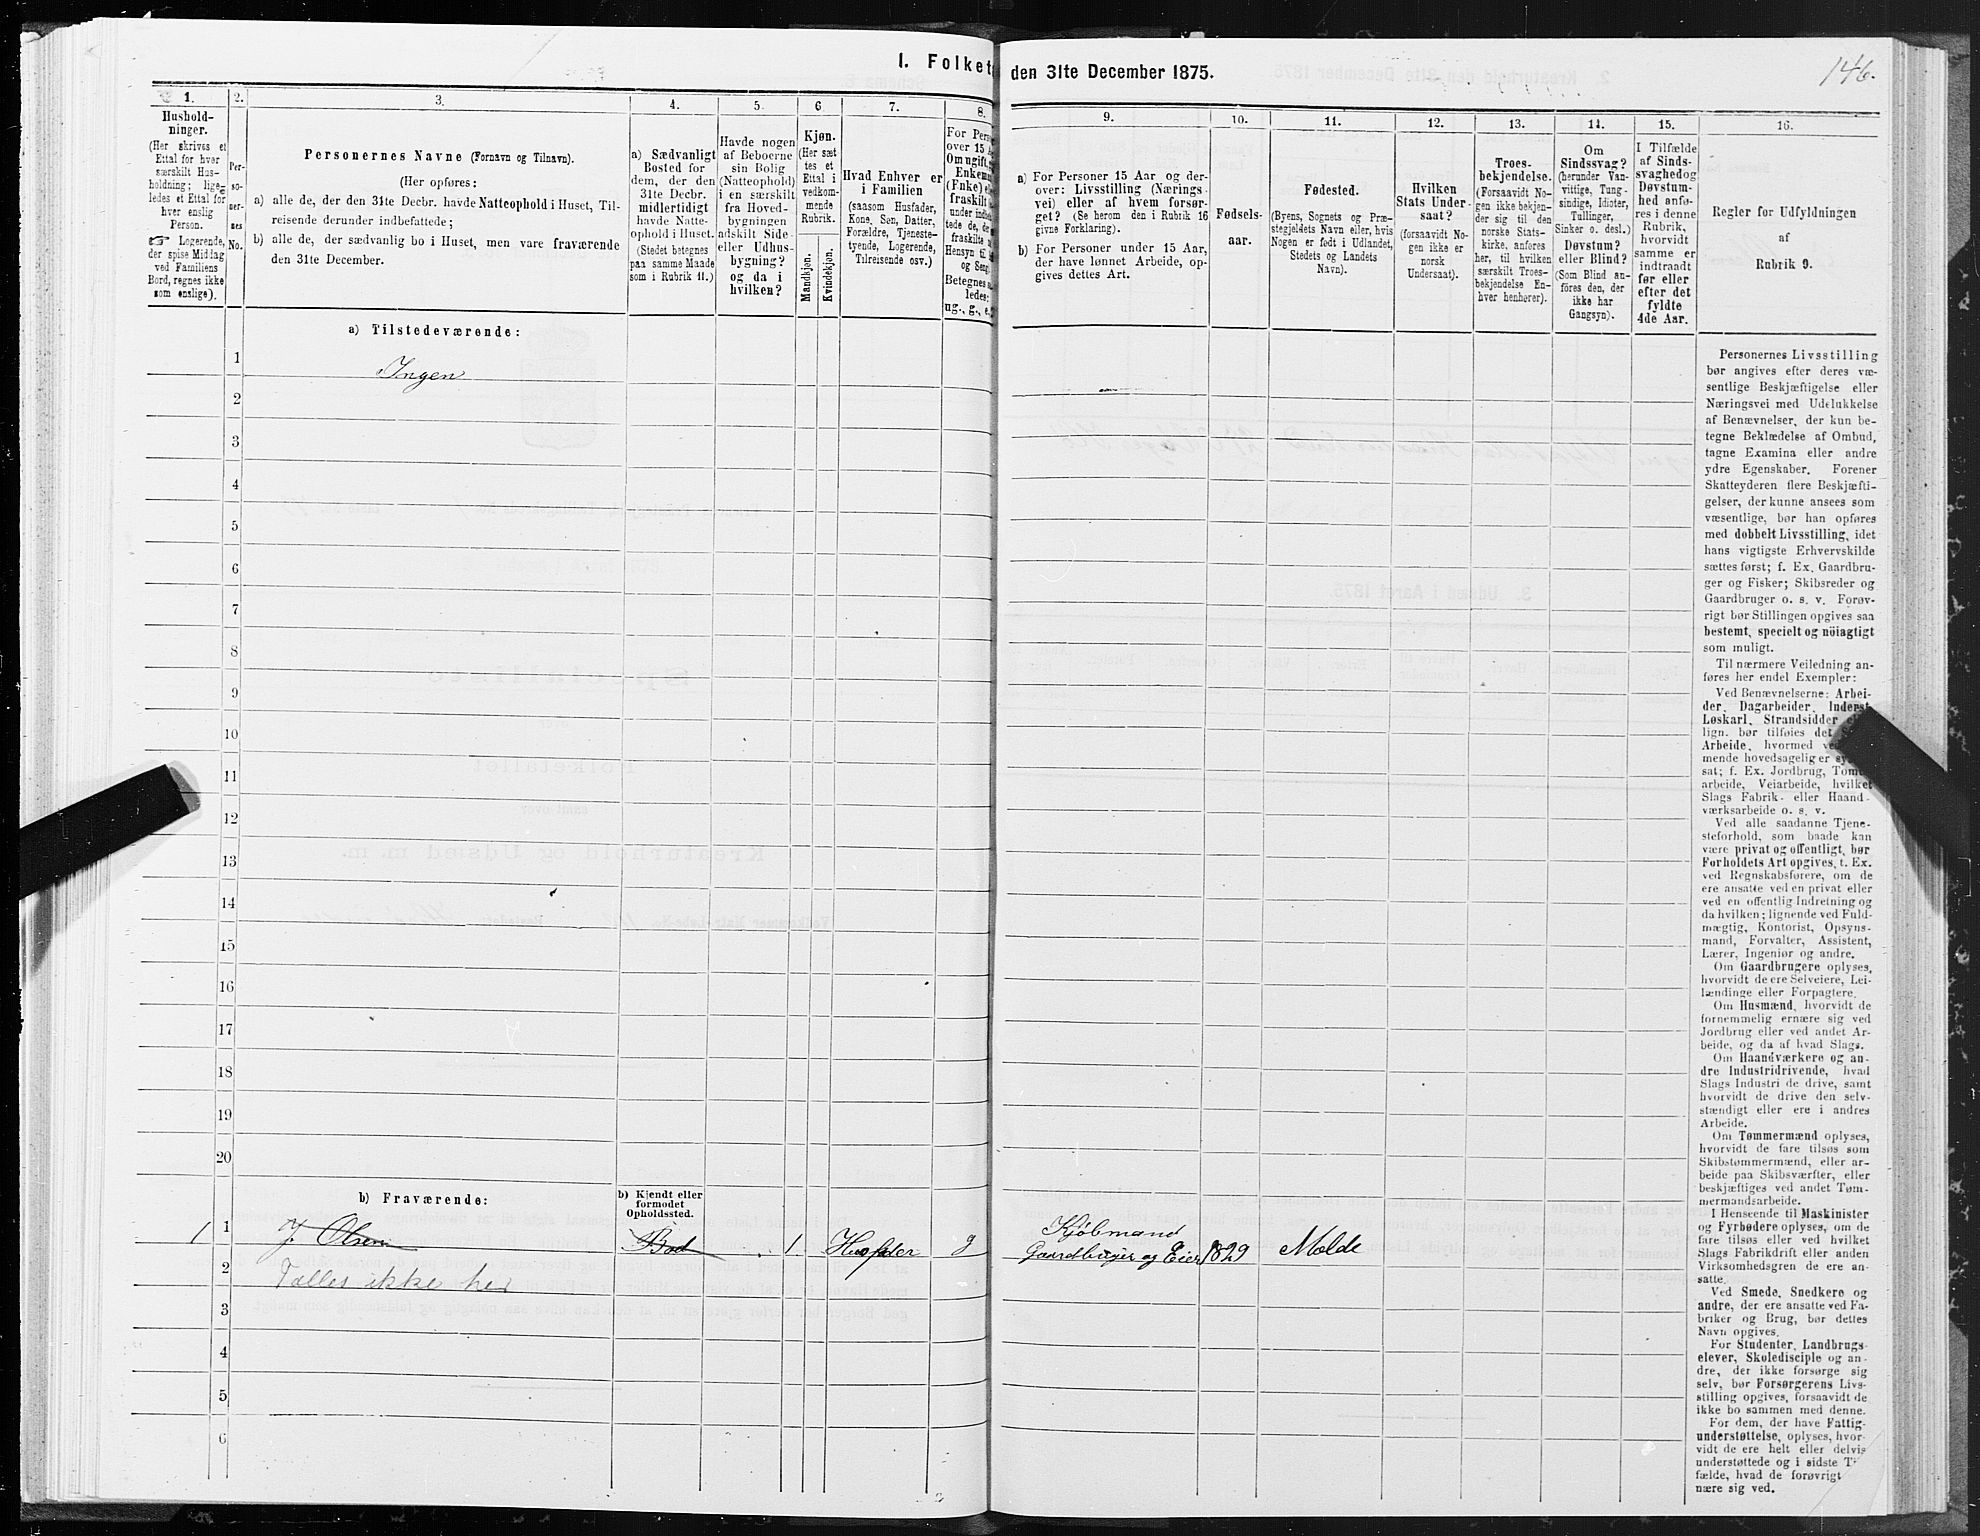 I. Folket
den 31te December 1875.
146.
1.
Hushold-
ninger.
(Her skrives et
Ettal for hver
særskilt Hus-
holdning; lige-
ledes et Ettal for
hver enslig
Person.
☞ Logerende,
der spise Middag
ved Familiens
Bord, regnes ikke
som enslige).
2.
Per-
so-
ner-
nes
No.
3.
Personernes Navne (Fornavn og Tilnavn).
(Her opføres:
a) alle de, der den 31te Decbr. havde Natteophold i Huset, Til-
reisende derunder indbefattede;
b) alle de, der sædvanlig bo i Huset, men vare fraværende
den 31te December.
4.
a) Sædvanligt
Bosted for
dem, der den
31te Decbr.
midlertidigt
havde Natte-
ophold i Huset.
(Stedet betegnes
paa samme Maade
som i Rubrik 11.)
5.
Havde nogen
af Beboerne
sin Bolig
(Natteophold)
i en særskilt
fra Hoved-
bygningen
adskilt Side-
eller Udhus-
bygning?
og da i
hvilken?
6
Kjøn.
(Her sæt
tes et
Ettal i
vedkom-
mende
Rubrik.
Mandkjøn.
Kvindekjøn.
7.
Hvad Enhver er
i Familien
(saasom Husfader,
Kone, Søn, Datter,
Forældre, Tjeneste-
tyende, Logerende,
Tilreisende osv.)
8.
For Pers
over 15 A
Om ugift,
Enkema
(Fnke) el
fraskilt
under indbe
tede de, de
fraskilte
Hensyn til
og Seng.
Betegnes s
ledes:
ug., g., e.
9.
a) For Personer 15 Aar og der-
over: Livsstilling (Nærings-
vei) eller af hvem forsør-
get? (Se herom den i Rubrik 16
givne Forklaring).
b) For Personer under 15 Aar,
der have lønnet Arbeide, op-
gives dettes Art.
10.
Fødsels-
aar.
11.
Fødested.
(Byens, Sognets og Præ-
stegjeldets Navn eller, hvis
Nogen er født i Udlandet,
Stedets og Landets
Navn).
12.
Hvilken
Stats Under-
saat?
(forsaavidt No-
gen ikke er
norsk
Undersaat).
13.
Troes-
bekjendelse.
(Forsaavidt No-
gen ikke bekjen-
der sig til den
norske Stats-
kirke, anføres
her, til hvilken
særskilt Troes-
bekjendelse En-
hver henhører).
14.
Om
Sindssvag?
(herunder Van-
vittige, Tung-
sindige, Idioter,
Tullinger,
Sinker o. desl.)
Døvstum?
eller Blind?
(Som Blind an-
føres den, der
ikke har
Gangsyn).
15.
I Tilfælde
af Sinds-
svaghed og
Døvstum-
hed anfø-
res i denne
Rubrik,
hvorvidt
samme er
indtraadt
før eller
efter det
fyldte
4de Aar.
16.
Regler for Udfyldningen
af
Rubrik 9.
a) Tilstedeværende:
1
Ingen
2
3
4
5
6
7
8
9
10
11
12
13
14
15
16
17
18
19
20
b) Fraværende:
b) Kjendt eller
formodet
Opholdssted.
1 1 J. Olsen Bod 1 Husfader g Kjøbmand
Gaardbruger og Eier 1829 Molde
2 Tælles ikke her
3
4
5
6
Personernes Livsstilling
bør angives efter deres væ-
sentlige Beskjæftigelse eller
Næringsvei med Udelukkelse
af Benævnelser, der kun be-
tegne Beklædelse af Ombud,
tagne Examina eller andre
ydre Egenskaber. Forener
Skatteyderen flere Beskjæfti-
gelser, der kunne ansees som
væsentlige, bør han opføres
med dobbelt Livsstilling, idet
hans vigtigste Erhvervskilde
sættes først; f. Ex. Gaardbru-
ger og Fisker; Skibsreder og
Gaardbruger o. s. v. Forøv-
rigt bør Stillingen opgives saa
bestemt, specielt og nöiagtigt
som muligt.
Til nærmere Veiledning an-
føres her endel Exempler:
Ved Benævnelserne: Arbei-
der, Dagarbeider, Inderst,
Løskarl, Strandsidder
lign. bør tilføies det
Arbeide, hvormed
mende hovedsagelig er
sat; f. Ex. Jordbrug, Tømmer-
arbeide, Veiarbeide, hvilket
Slags Fabrik- eller Haand-
værksarbeide o. s. v.
Ved alle saadanne Tjene-
steforhold, som baade kan
være privat og offentligt, bør
Forholdets Art opgives, t. Ex.
ved Regnskabsførere, om de
ere ansatte ved en privat eller
ved en offentlig Indretning og
da hvilken; lignende ved Fuld-
mægtig, Kontorist, Opsyns-
mand, Forvalter, Assistent,
Lærer, Ingeniør og andre.
Om Gaardbrugere oplyses,
hvorvidt de ere Selveiere, Lei-
lændinge eller Forpagtere.
Om Husmænd, hvorvidt de
fornemmelig ernære sig ved
Jordbrug eller ved andet Ar-
beide, og da af hvad Slags.
Om Haandværkere og an-
dre Industridrivende, hvad
Slags Industri de drive, samt
hvorvidt de drive den selv-
stændigt eller ere i andres
Arbeide.
Om Tømmermænd oplyses,
hvorvidt de fare tilsøs som
Skibstømmermænd, eller ar-
beide paa Skibsværfter, eller
beskjæftiges ved andet Tøm-
mermandsarbeide.
I Henseende til Maskinister
og Fyrbødere oplyses, om de
fare tilsøs eller ved hvilket
Slags Fabrikdrift eller anden
Virksomhedsgren de ere an-
satte.
Ved Smede, Snedkere og
andre, der ere ansatte ved Fa-
briker og Brug, bør dettes
Navn opgives.
For Studenter, Landbrugs-
elever, Skoledisciple og an-
dre, der ikke forsørge sig
selv, bør Forsørgerens Livs-
stilling opgives, forsaavidt de
ikke bo sammen med denne.
For dem, der have Fattig-
understøttelse, oplyses, hvor-
vidt de ere helt eller delvis
understøttede og i sidste Til
fælde, hvad de forøvrigt
nære sig ved.